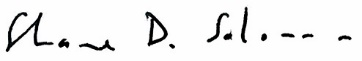 Shane D. Solomon